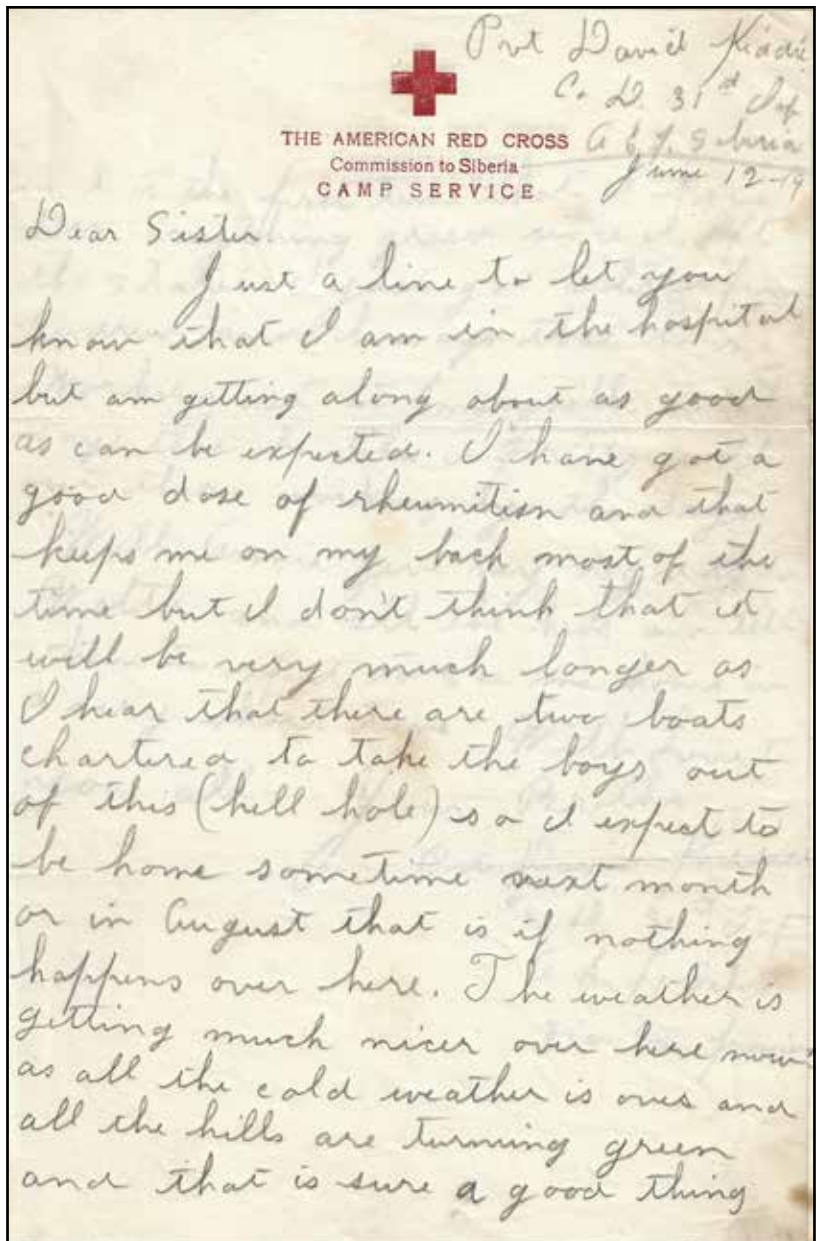 Pvt David Kiddie
Co D. 31st Inf
A E F Siberia
June 12-19
THE AMERICAN RED CROSS
Commission to Siberia
CAMP SERVICE
Dear Sister
Just a line to let you
know that I am in the hospital
but am getting along about as good
as can be expected. I have got a
good dose of rheumitism and that
keeps me on my back most of the
time but I don't think that it
will be very much longer as
I hear that there are two boats
chartered to take the boys out
of this (hell hole) so I expect to
be home sometime next month
or in August that is if nothing
happens over here. The weather is
getting much nicer over here now
as all the cold weather is over and
all the hills are turning green
and that is sure a good thing